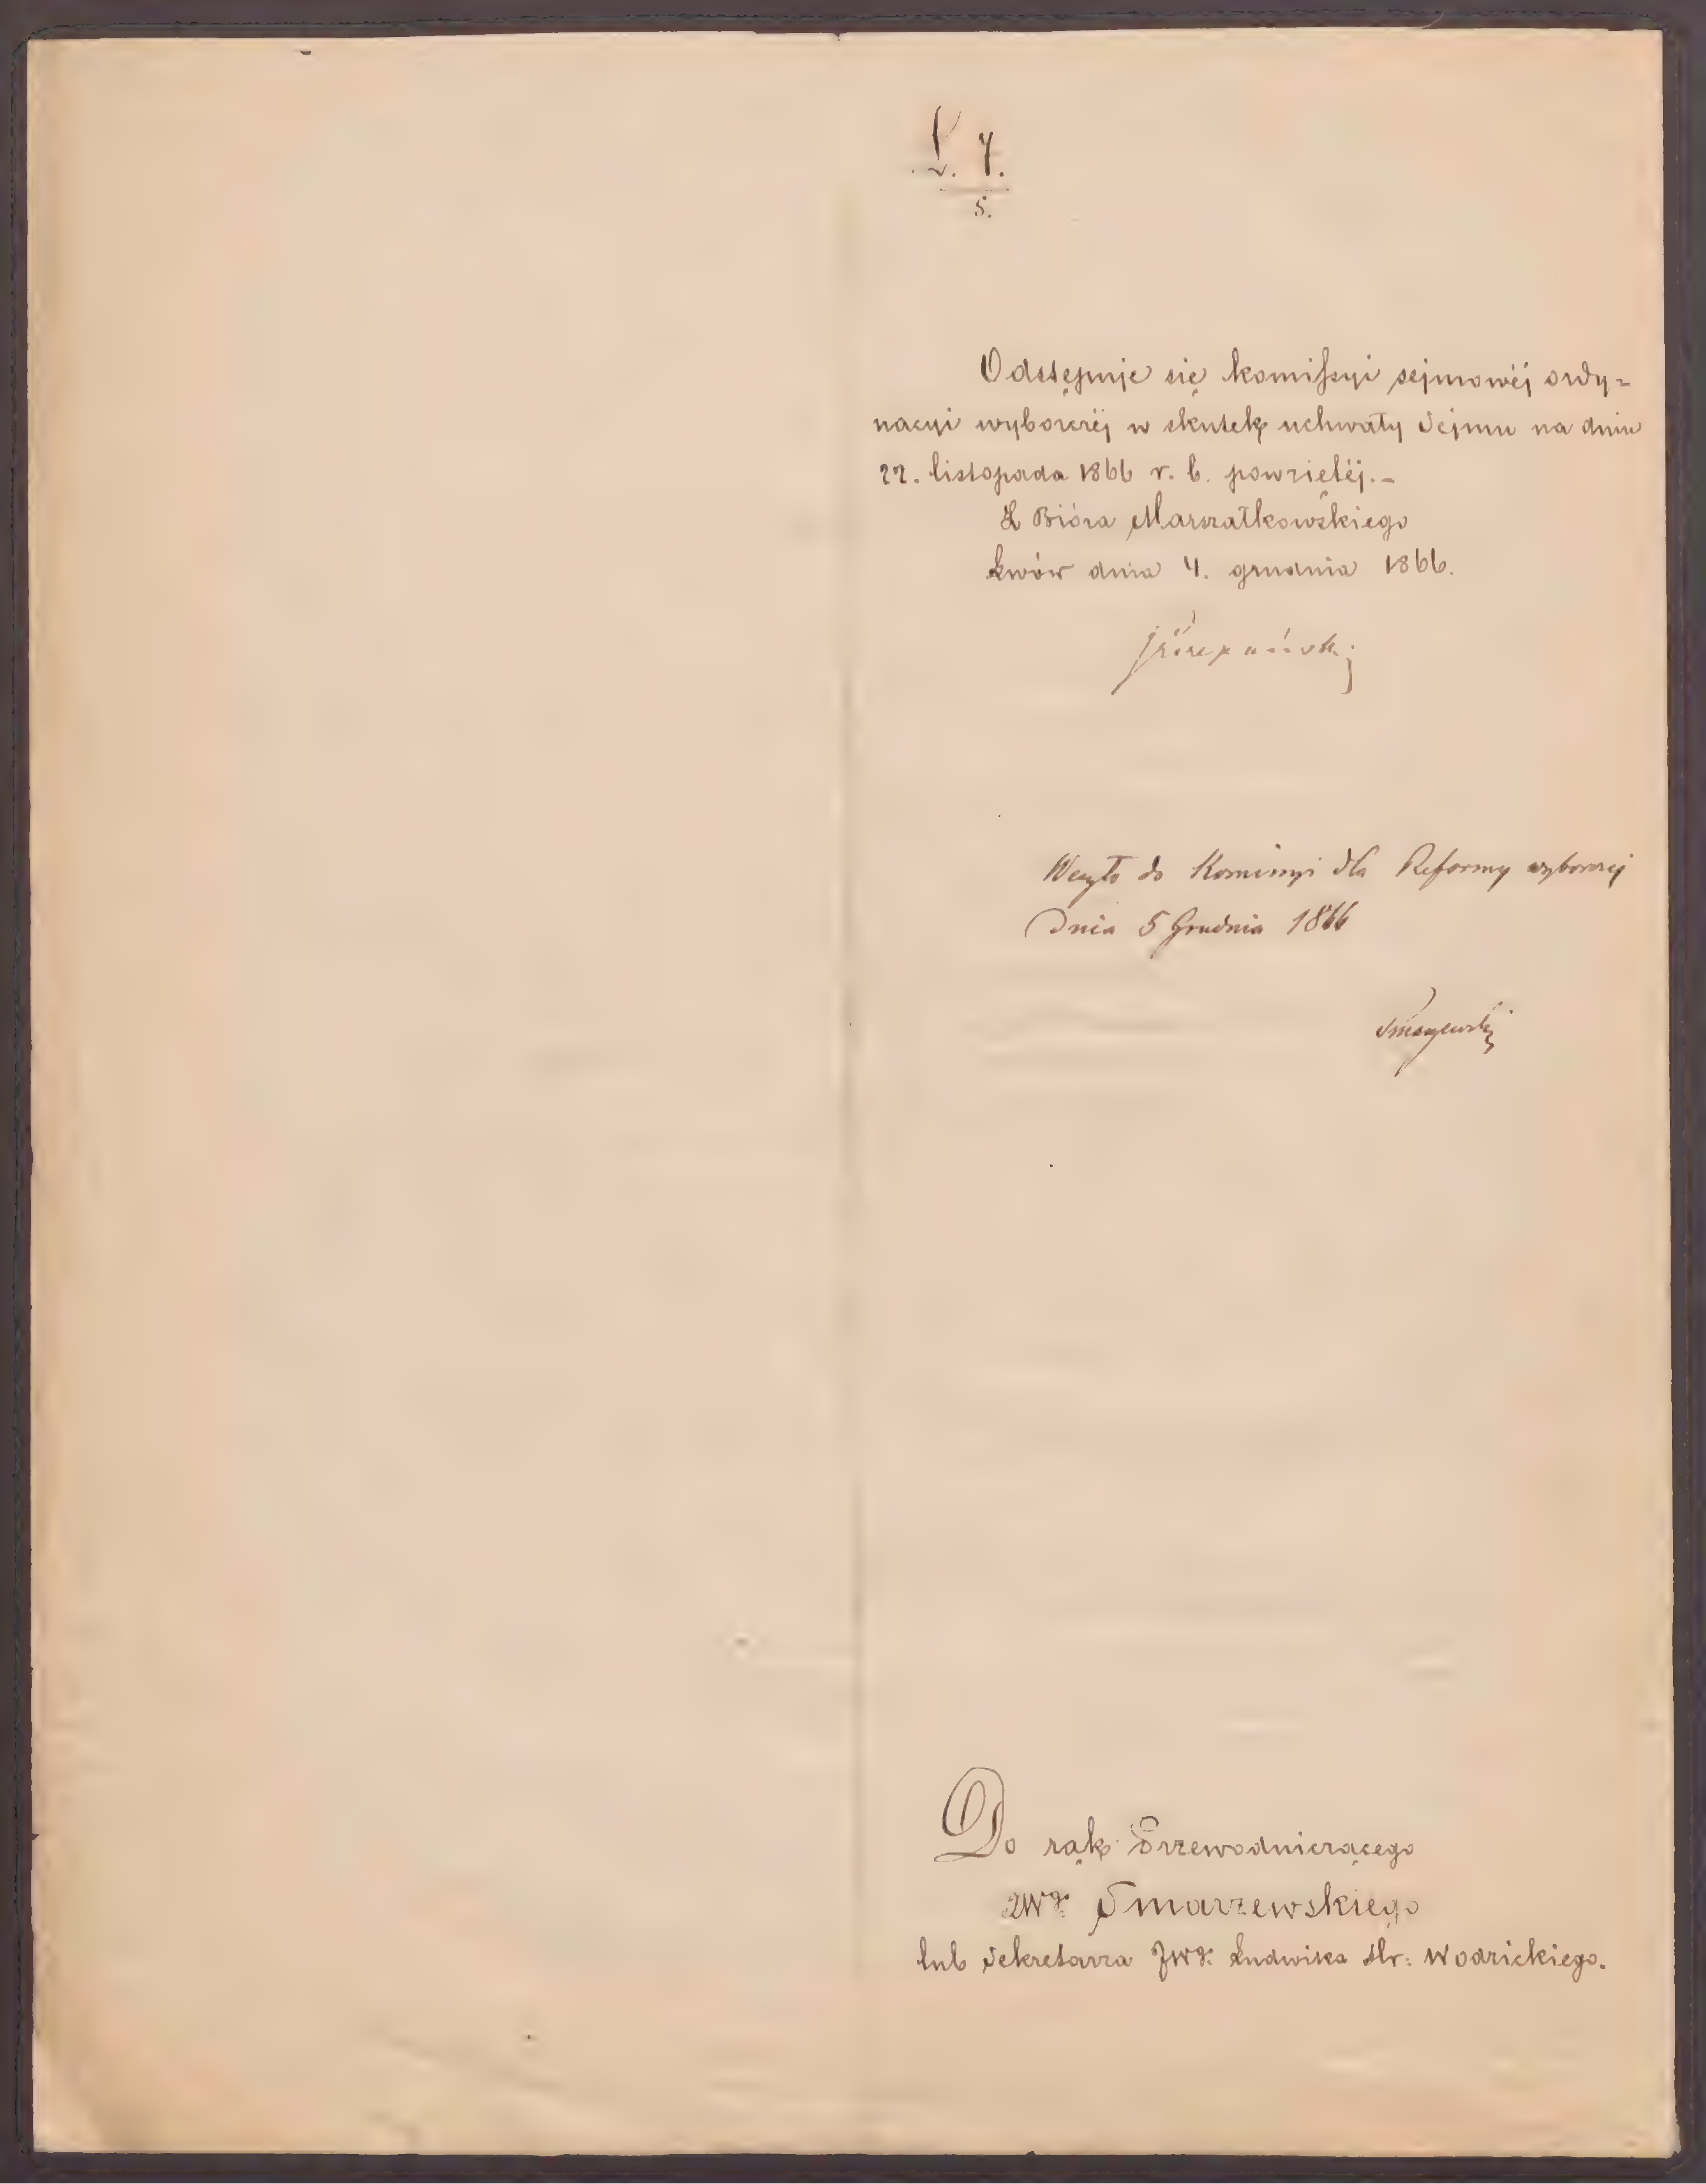 L. 7.
5.
Odstępuje się komissyi sejmowéj ordy=
nacyi wyborczéj w skutek uchwały Sejmu na dniu
22. listopada 1866 r. b. powziętéj.–
Z Bióra Marszałkowskiego
Lwów dnia 4. grudnia 1866.
Weszło do Komissyi dla Reformy wyborczej
Dnia 5 Grudnia 1866
Smarzewski
Do rąk Przewodniczącego
JWgo Smarzewskiego
lub Sekretarza JWgo Ludwika Hr: Wodzickiego.